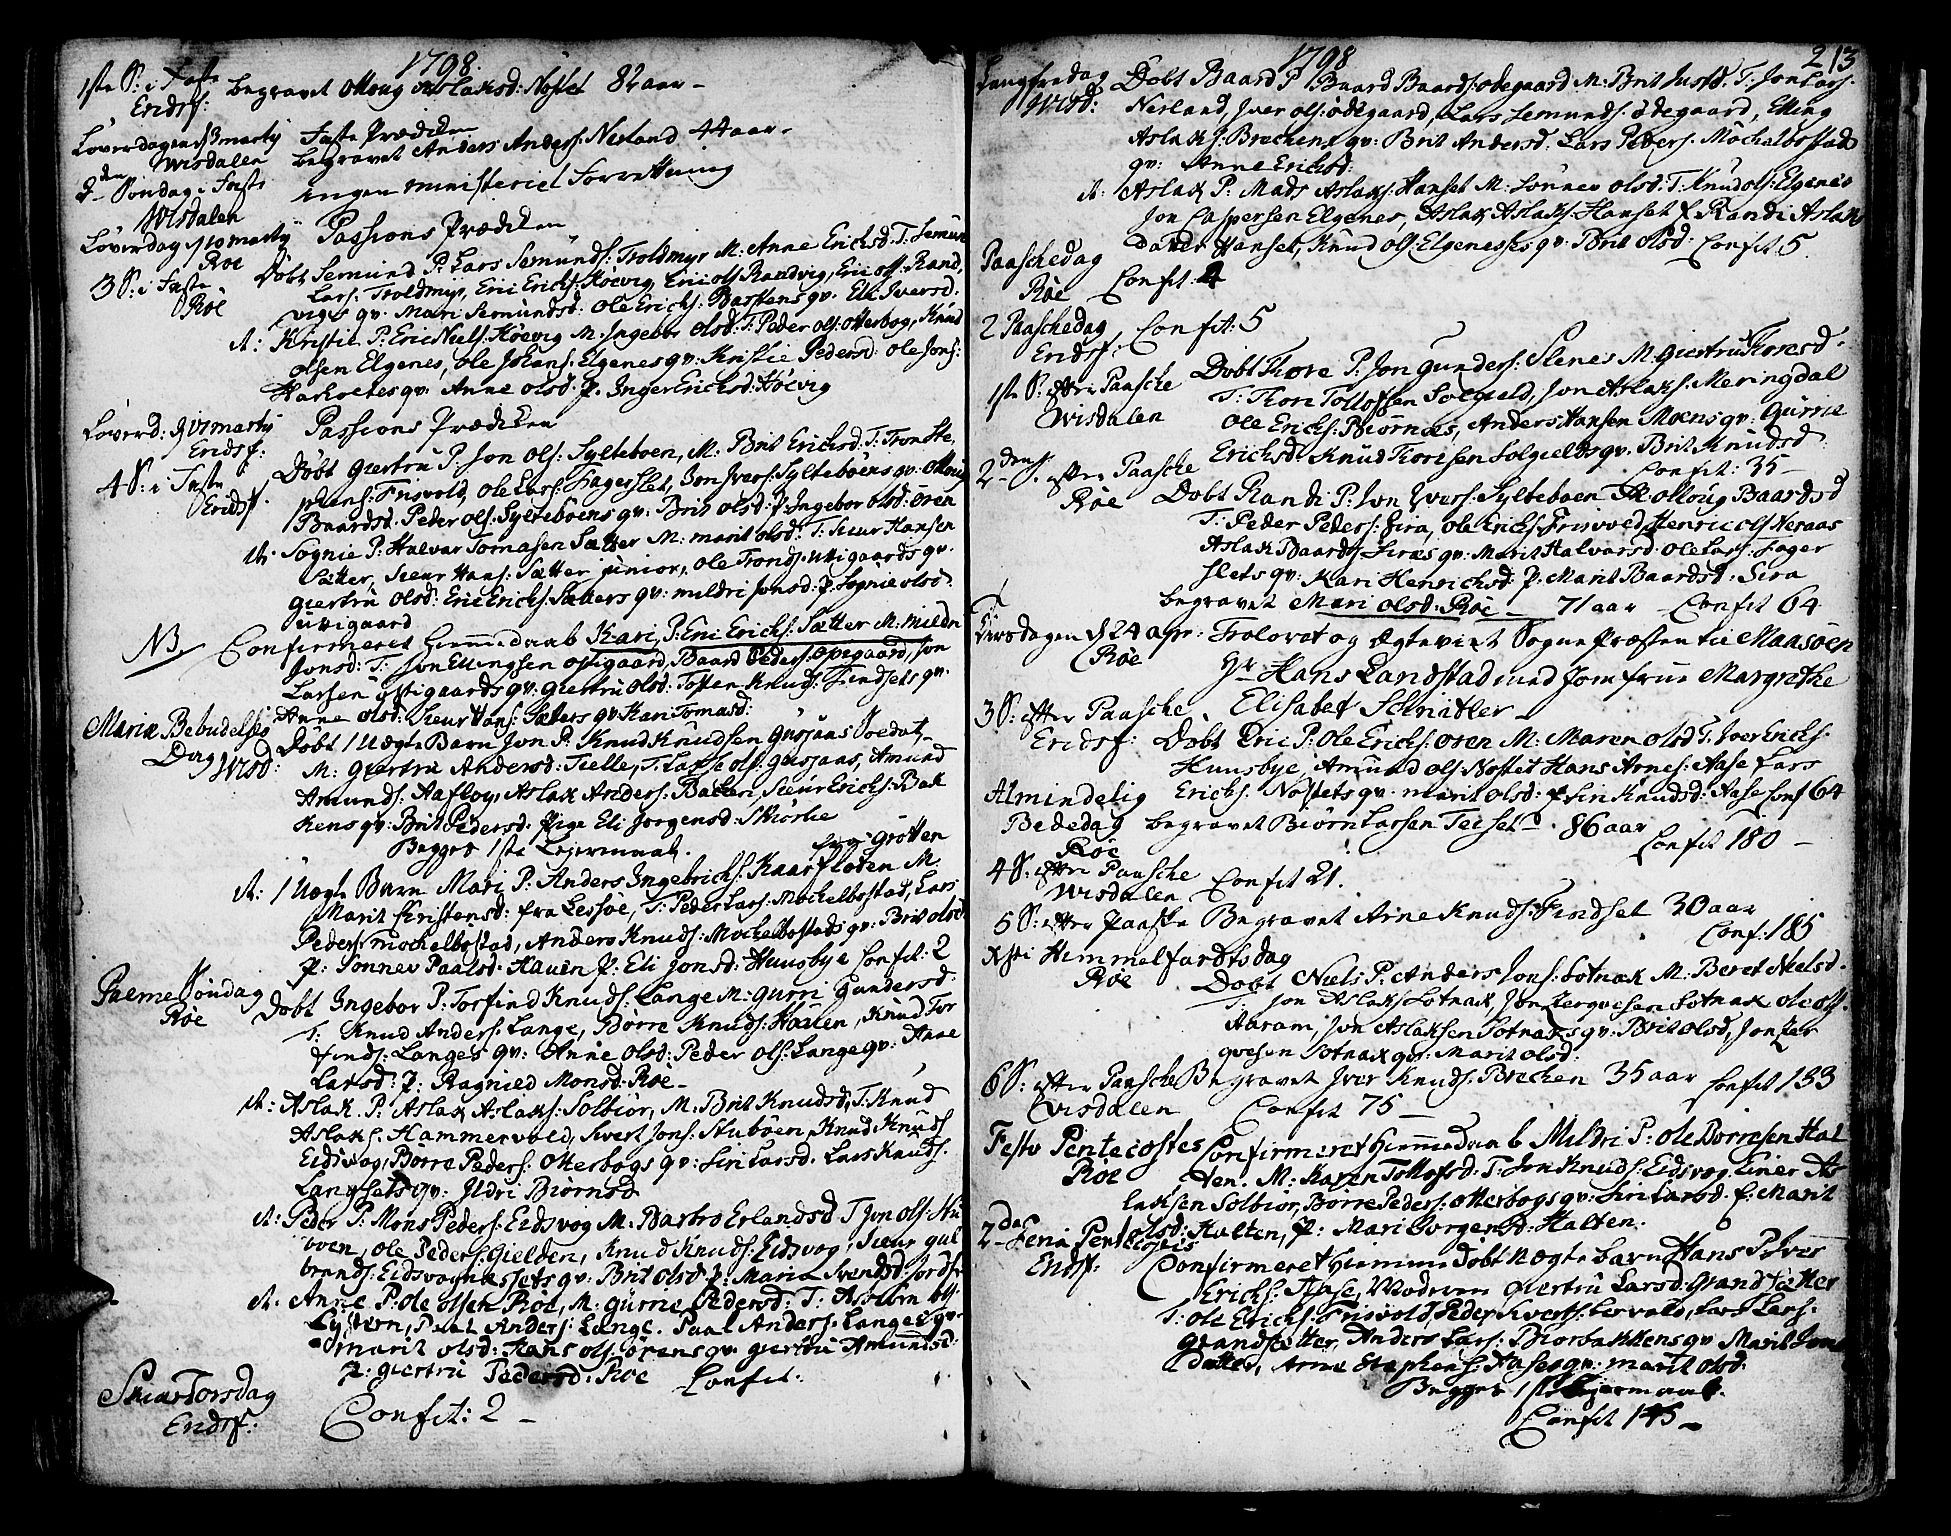 1798.
1ste S: i Faste
Eridsf:
begravet Olloug Aslaksd: Nøstet 82 aar –
Løverdagen d 3 marty
Wisdalen
Faste Prædiken
begravet Anders Anders: Nerland 44 aar –
2den Søndag i Faste
Wisdalen
ingen ministeriel Forretning
Løverdag d 10 marty
Røe
Passions Prædiken
3 S: i Faste
Røe
Døbt Semund P: Lars Semunds: Troldmyr M: Anne Erichsd: T: Semun
Lars: Troldmyr, Eric Erichs: Høevig, Eric Ols: Randvig, Eric Ols: Rand,
viges qv: Mari Semundsd: Ole Erichs: Bastens qv: Eli Iversd:
it: Kristie P: Eric Niels: Høevig M: Ingebor Olsd: T: Peder Ols: Otterbog, Knud
Olsen Elgenes, Ole Johans: Elgenes qv: Kristie Pedersd: Ole Jons:
qv: Anne Olsd: P. Inger Erichsd: Høevig
Løverd: d 17 marty
Eridsf:
Passions Prædiken
4 S: i Faste
Eridsf.
Døbt Giertru P: Jon Ols: Sylteboen, M: Brit Erichsd: T: Tron Ste,
phans: Frisvold, Ole Lars: Fagerslet, Jon Ivers: Sylteboens qv: Olloug
Baardsd: Peder Ols: Sylteboens qv: Brit Olsd: P. Ingebor Olsd: Øren
it: Sognie P: Halvar Tomasen Sætter M: Marit Olsd: T: Sieur Hansen
Sætter, Sieur Hans: Sætter junior, Ole Tronds: Utigaards qv:
Giertru Olsd: Eric Erichs: Sætters qv: Mildri Jonsd: P. Sognie Olsd:
Uttigaard
NB. Confirmeret hiemmedaab Kari, P: Eric Erichs: Sætter M: Mildri
Jonsd: T: Jon Ellingsen Opigaard, Baard Peders: Opigaard, Jon
Larsen Uttigaards qv: Giertru Olsd: Tosten Knuds: Findsets qv:
Anne Olsd: Sieur Hans: Sæters qv: Kari Tomasd:
Mariæ Bebudelses
Dag Wisd:
Døbt 1 Uægte Barn Jon P: Knud Knudsen Gusiaas Soldat,
M: Giertru Andersd: Tielle, T: Ols: Gusiaas, Amund
Amunds: Aafloy, Aslak Anders: Bakken, Sieur Erichs: Bak
kens qv: Brit Pedersd: Pige Eli Jørgensd: Skiørlie
Begges 1ste Leiermaal.
it: 1 Uægte Barn Mari P: Anders Ingebrichs: Kaarsfloten M:
Marit Kristensd: fra Lessøe, T: Peder Lars: Mochelbostad, Lars
Peders: Mochelbostad, Anders Knuds: Mochelbostads qv: Brit Olsd:
P: Sønnev Paalsd: Hauen P. Eli Jonsd: Huusbye Confit: 2
Palme Søndag
Røe
Døbt Ingebor P: Torfind Knuds: Lange M: Gurri Gundersd:
T: Knud Anders: Lange, Børre Knuds: Hauen, Knud Tor
finds: Langes qv: Anne Olsd: Peder Ols: Lange qv: Anne
Larsd: P: Ragnied Monsd: Røe –
it: Aslak P: Aslak Aslaks: Solbiør, M: Brit Knudsd, T: Knud
Aslaks: Hammervold, Sivert Jons: Stuboen, Knud Knuds
Eidsvog, Børre Peders: Otterbogs qv: Siri Larsd. Lars Knuds:
Langsets qv: Ildri Biørnsd
it: Peder P: Mons Peders: Eidsvog M: Barbro Erlandsd T Jon Ols: Stu
boen, Ole Peders: Gielden, Knud Knuds: Eidsvog, Sieur Gul
brands: Eidsvognæssets qv: Brit Olsd: P: Maria Svendsd:
it: Anne P: Ole Olsen Røe, M: Gurrie Pedersd: T: Asbiørn
Paal Anders: Lange. Paal Anders: Langes qv:
Marit Olsd: Hans Ols: Ørens qv: Giertru Amundsd:
P: Giertru Pedersd: Røe Confit:
Skiær Torsdag
Eridsf:
Confit: 2 –
1798 213
Langfredag
Wisd:
Døbt Baard P Baard Baards: Ødegaard M: Brit Justd: T: Jon Lars:
Nerland, Iver Ols: Ødegaard, Lars Semunds: Ødegaard, Elling
Aslaks: Brechens qv: Brit Andersd: Lars Peders: Mochelbostads
qv: Anne Erichsd:
it: Aslak P: Mads Aslaks: Hanset M: Sønnev Olsd: T: Knud Ols: Elgenes
Jon Caspersen Elgenes, Aslak Aslaks: Hanset P. Randi Aslaks
Datter Hanset, Knud Ols: Elgenesses qv: Brit Olsd: Confit 5
Paaschedag
Røe
Confit: 4
2 Paaschedag
Eridsf:
Confit: 5
1ste S: efter Paasche
Wisdalen
Døbt Tore P: Jon Gunders: Stenes M: Giertru Toresd:
T: Tore Tollofsen Solgield, Jon Aslaks: Meringdal
Ole Erichs: Biørnæs, Anders Hansen Moens qv: Gurrie
Erichsd: Knud Toresen Solgields qv: Brit Knudsd:
Confit: 35 –
2den S. efter Paasche
Røe
Døbt Randi P: Jon Ivers: Sylteboen M: Olloug Baardsd
T: Peder Peders: Sira, Ole Erichs: Frisvold, Henric Ols Neraas
Aslak Baards: Siras qv: Marit Halvarsd: Ole Lars: Fager
slets qv: Kari Henrichsd: P. Marit Baardsd: Sira
begravet Mari Olsd: Røe – 71 aar – Confit 64
Tiirsdagen d 24 apr:
Røe
Trolovet og Ægteviet Sogne Præsten til Maasøen
Hr Hans Landstad med Jomfrue Margrethe
Elisabet Schnitler –
3 S: efter Paasche
Eridsf:
Døbt Eric P: Ole Erichs: Øren M: Maren Olsd T. Iver Erichs:
Huusbye, Amund Ols: Nøstet Hans Arnes: Aase Lars
Erichs: Nøstets qv: Marit Olsd: P. Siri Knudsd: Aase Conf 64
Almindelig
Bededag
Røe
begravet Biørn Larsen Teiset 86 aar
Confit 180 –
4 S: efter Paasche
Wisdalen
Confit 21.
5 S: efter Paaske Begravet Arne Knuds: Findset 30 aar
Conf: 185
Xsti Himmelfardtsdag
Røe
Døbt Niels P: Anders Jons: Sotnak M: Beret Nielsd.
T: Jon Aslaks Sotnak, Jon Sotnak Ole Ols:
Aaram, Jon Aslaksen Sotnaks qv: Brit Olsd, Jon
Sotnak qv: Marit Olsd:
6 S: efter Paasche
Wisdalen
Begravet Iver Knuds: Brechen 35 aar Confit 133
Confit 75 –
Festo Pentecostes
Røe
Confirmeret hiemmedaab Mildri P: Ole Børresen Hal
ten. M: Karen Tollofsd: T: Jon Knuds: Eidsvog Einer As
laksen Solbiør, Børre Peders: Otterbogs qv: Siri Larsd: P: Marit
Olsd: Halten, P: Mari Jørgensd: Halten.
2da Feria Pentecostes
Eridsf:
Confirmeret hiemme Døbt Uægte barn Hans P: Iver
Erichs: Aase, Moderen Giertru Larsd: Grandsætter
T: Ole Erichs: Frisvold, Peder Siverts: Torvald, Lars Lars:
Grandsetter, Anders Lars: qv: Marit Jons
datter, Arne Stephens: Aases qv: Marit Olsd:
Begges 1ste Leiermaal.
Confit 145 –